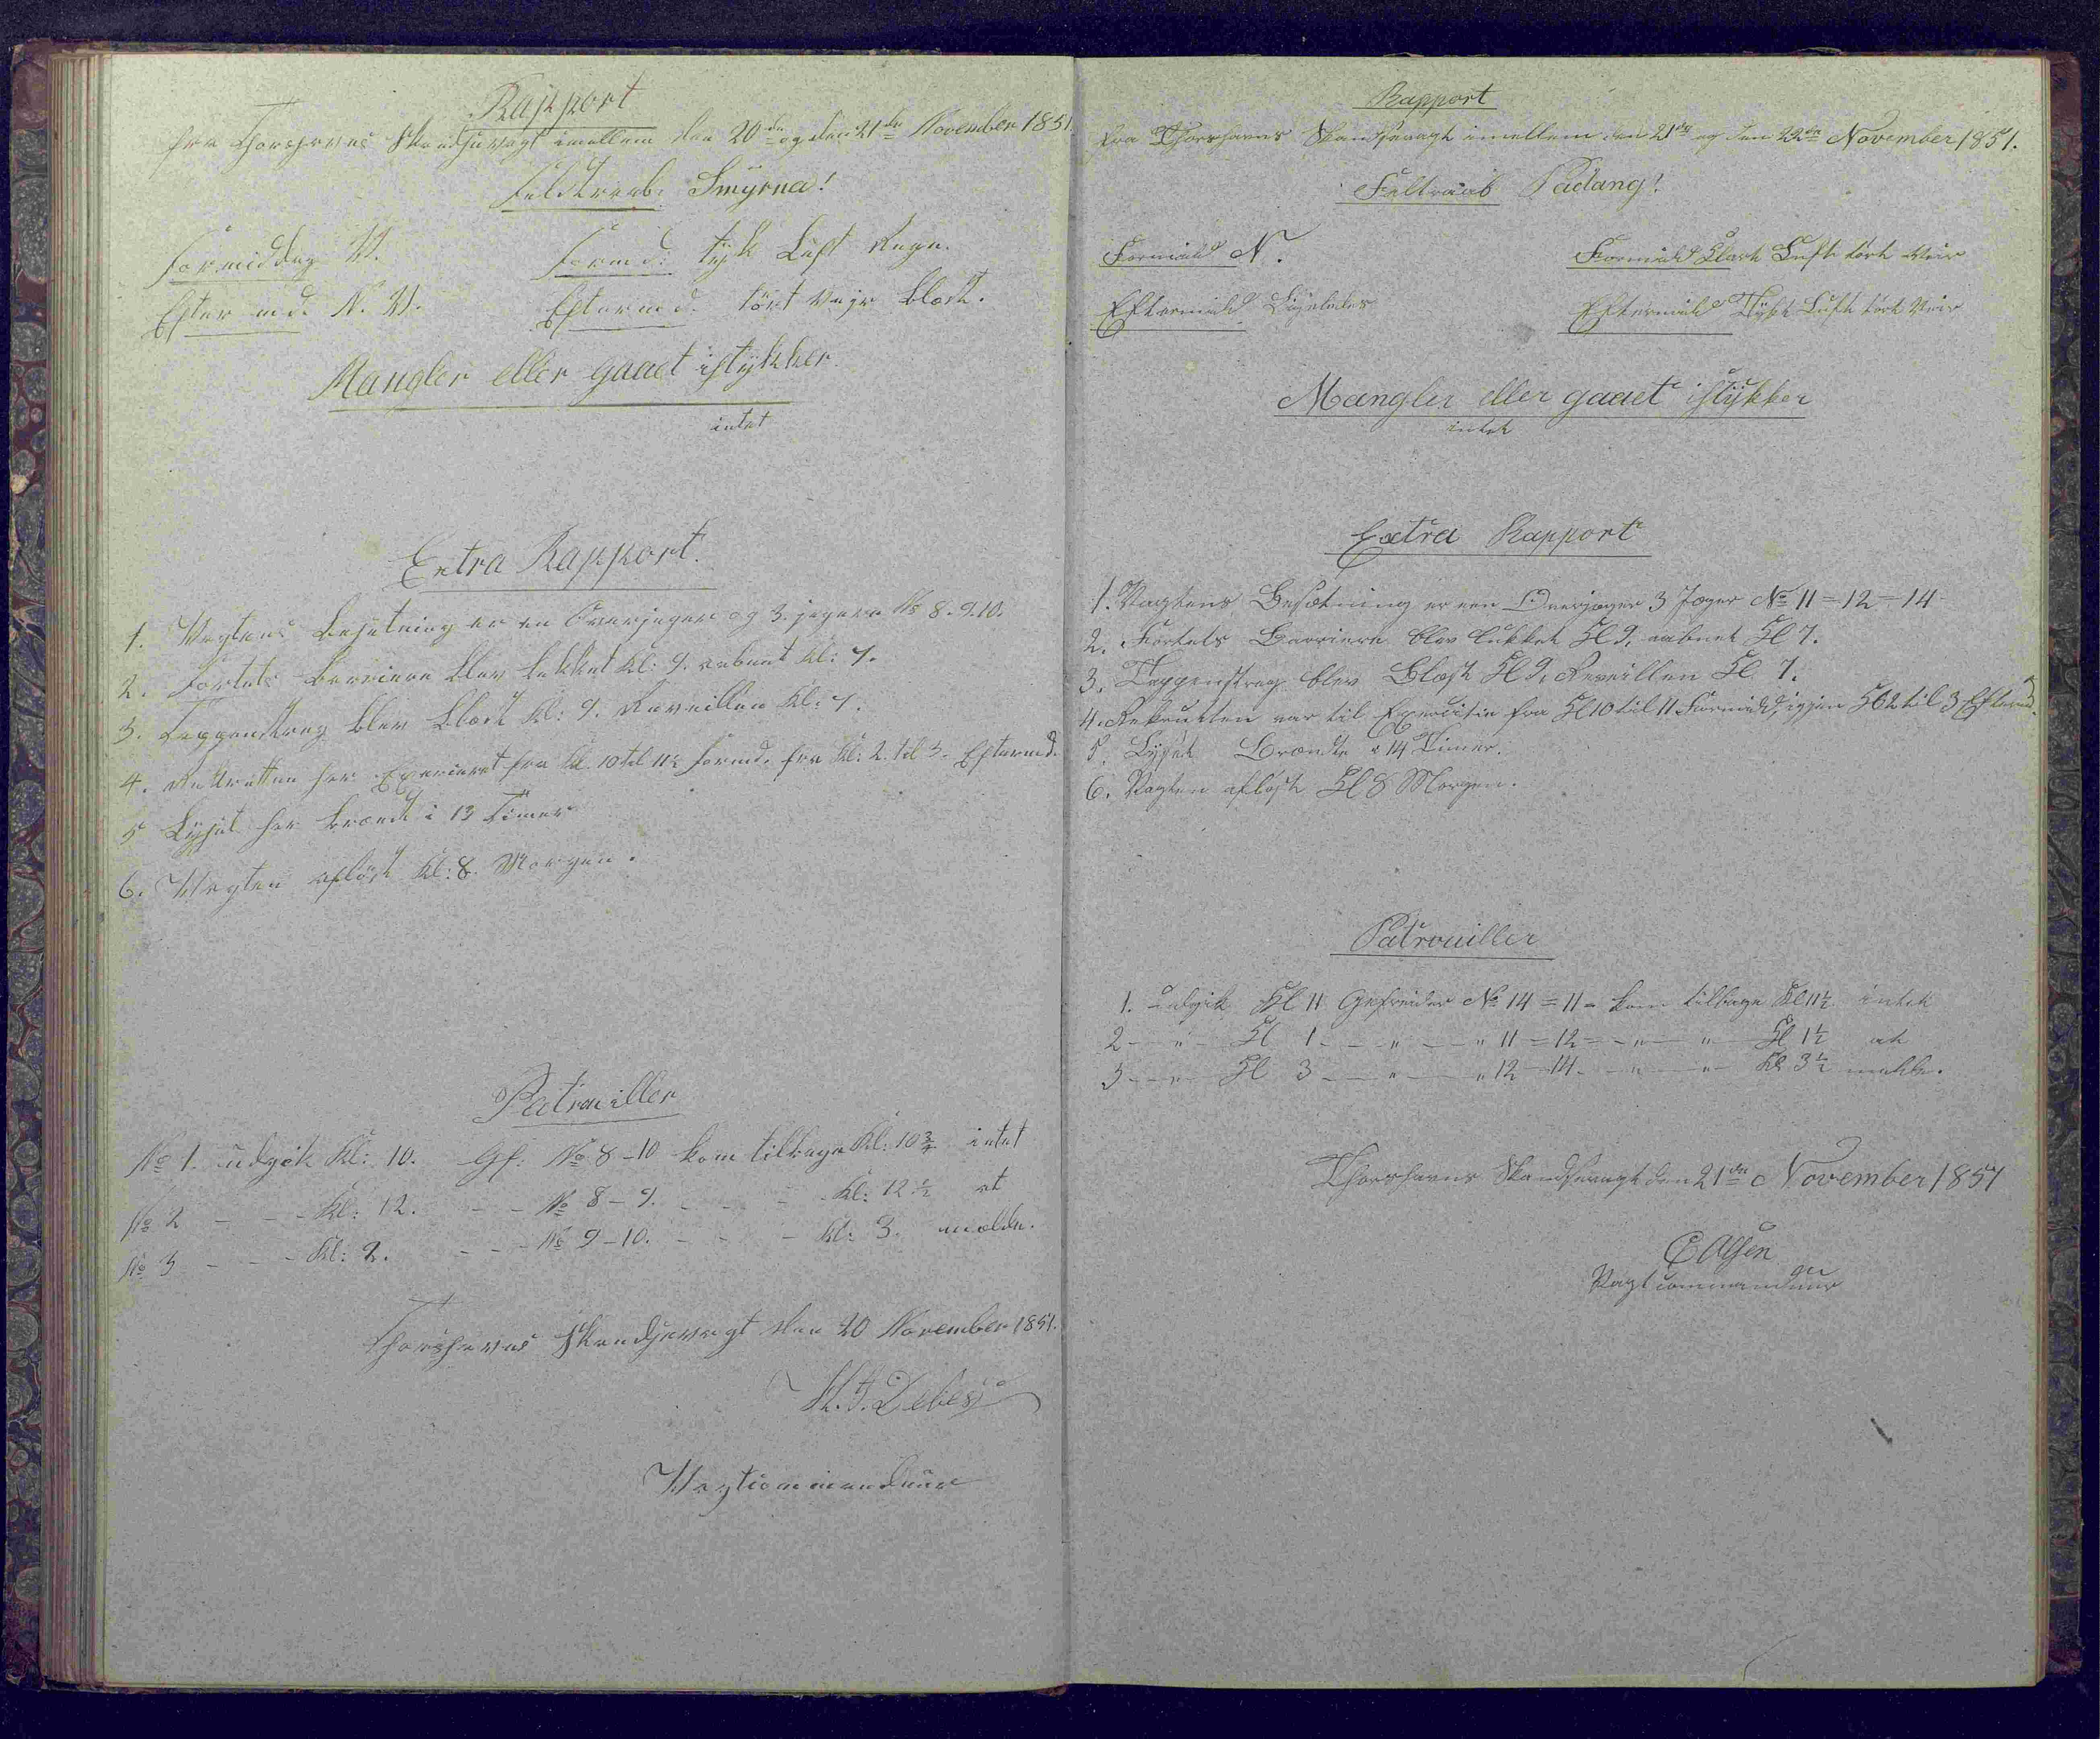 Rapport
fra Thorshavns Skandsevagt imellem den 20de og den 21de November 1851
Feldtraab: Smyrna!
Formiddag V.
Formd: tyk Luft Regn.
Efter md. N. V.
Eftermd. tört Vejr Blæst.
Mangler eller gaaet istykker
intet
Extra Rapport.
1. Vagtens Besætning er en Overjæger og 3 jegere No 8. 9. 10.
2. Fortets Barriere blev lukket Kl: 9. aabnet Kl: 7.
3. Tappenstreg blev blæst Kl: 9. Reveillen Kl: 7.
4. Rekrutten har Exerceret fra Kl. 10 til 11½ Formd. fra Kl: 2. til 3. Eftermd.
5 Lyset har brændt i 13 Timer
6. Vagten aflöst Kl: 8. Morgen.
Patrouiller
No 1. udgik Kl: 10. Gf: No 8-10 kom tilbage Kl: 10¾ intet
No 2 - - - Kl: 12. - - No 8-9. - - - Kl: 12½ at
No 3 - - - Kl: 2. - - - No 9-10. - - - Kl: 3. melde.
Thorshavns Skandsevagt den 20 November 1851.
Debes
Vagtcommandeur
Rapport
Fra Thorshavns Skandsevagt imellem den 21de og den 22de November 1851.
Feltraab Padang!
Formidd N.
Formidd Klart Luft tört Veir
Eftermidd Ligeledes
Eftermidd Tykt Luft tört Veir
Mangler eller gaaet istykker
intet
Extra Rapport
1. Vagtens Besætning er een Overjæger 3 Jæger No 11=12=14
2. Fortets Barriere blev lukket Kl 9, aabnet Kl 7.
3. Tappenstreg blev Blæst Kl 9, Reveillen Kl 7.
4. Rekrutten var til Exercitie fra Kl 10 til 11 Formidd, igjen Kl 2 til 3 Eftermd.
5. Lyset Brændte i 14 Timer.
6. Vagten aflöst Kl 8 Morgen.
Patrouiller
1. udgik Kl 11 Gefreider No 14=11= kom tilbage Kl 11½ intet
2 - " - Kl 1 - - " - - " 11=12= - " - " - Kl 1½ at
3 - " - Kl 3 - - " - - " 12 14 - " - " - Kl 3½ melde.
Thorshavns Skandsevagt den 21de November 1851
Vagtcommandeur